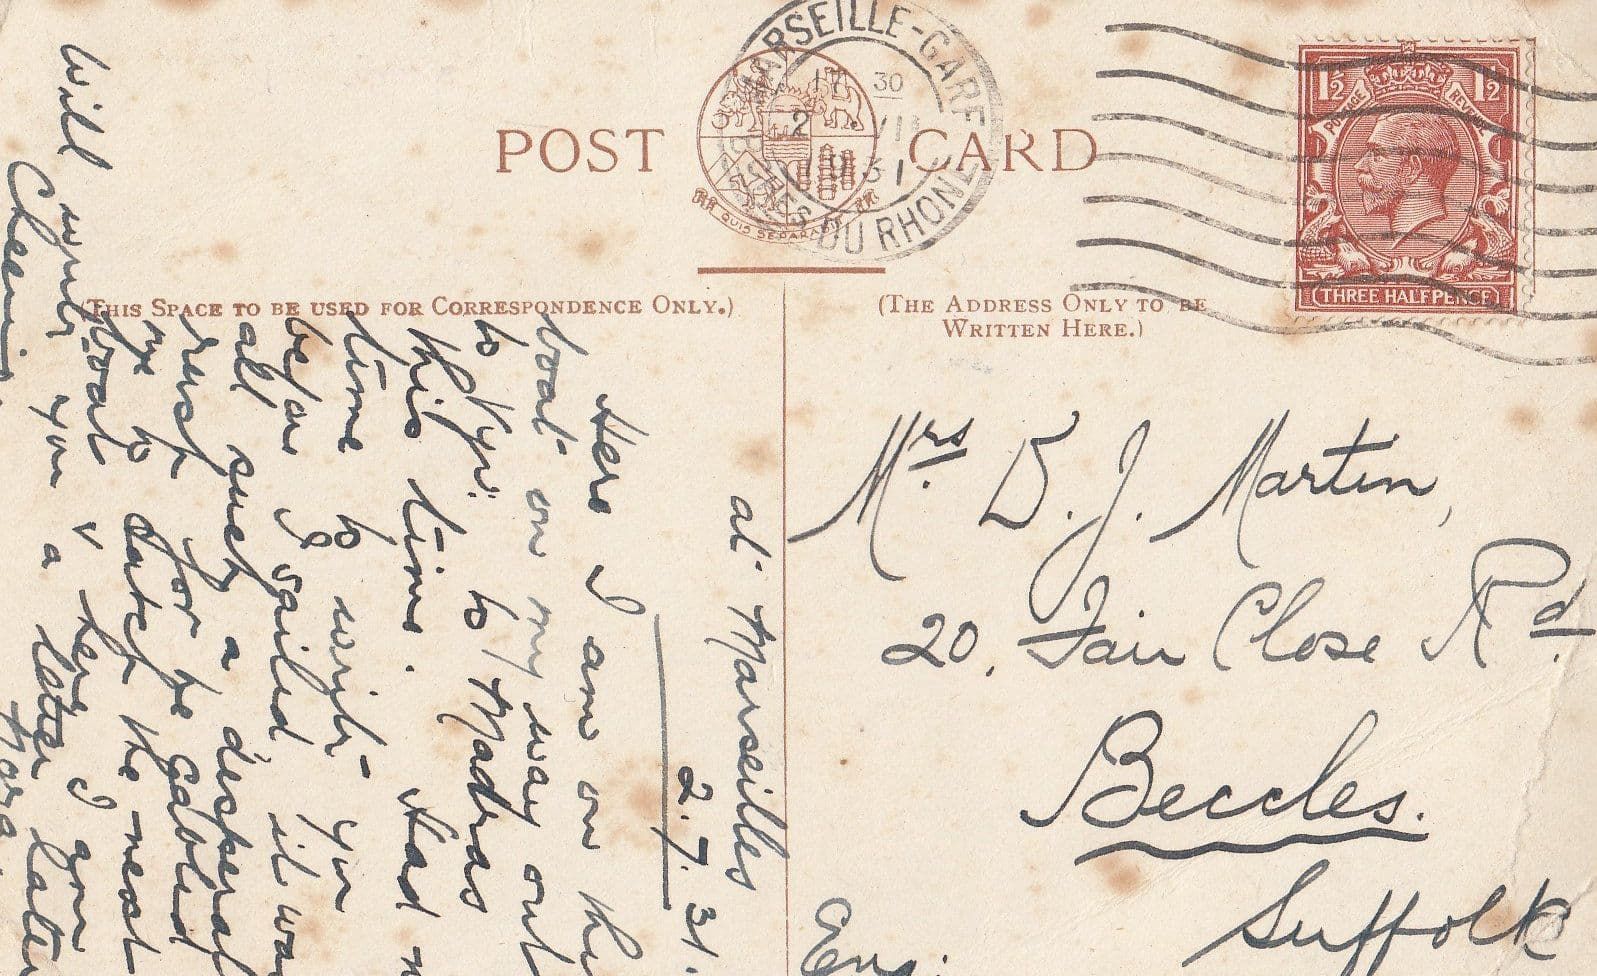 POST CARD
MARSEILLE-GARE
17 30
2 VII
1931
BCHES DU RHONE
QUIS SEPARABIT
1½ 1½
POSTAGE REVENUE
THREE HALFPENCE
(THIS SPACE TO BE USED FOR CORRESPONDENCE ONLY.)
(THE ADDRESS ONLY TO BE
WRITTEN HERE.)
at Marseilles
2.7.31.
Here I am on the
boat on my way out
to to Madras
this time. Had n
time to write you
before I sailed it wa
all such a desperat
rush for he cabled
me to catch the next
boat & here I am
Will write you a letter later
Cheerio
Nora
Mrs. D. J. Martin,
20, Fair Close Rd.
Beccles.
Suffolk